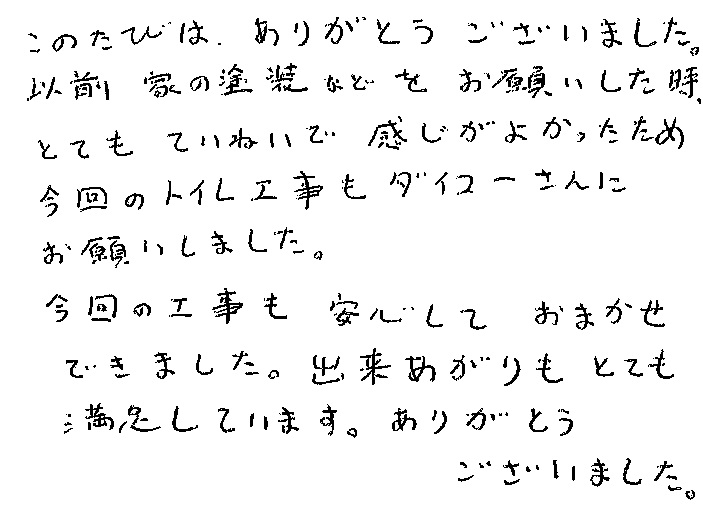 このたびは、ありがとう ございました。
以前 家の塗装などを お願いした時、
とても ていねいで 感じがよかったため
今回のトイレ工事も ダイコーさんに
お願いしました。
今回の工事も 安心して おまかせ
できました。出来あがりも とても
満足しています。ありがとう
ございました。